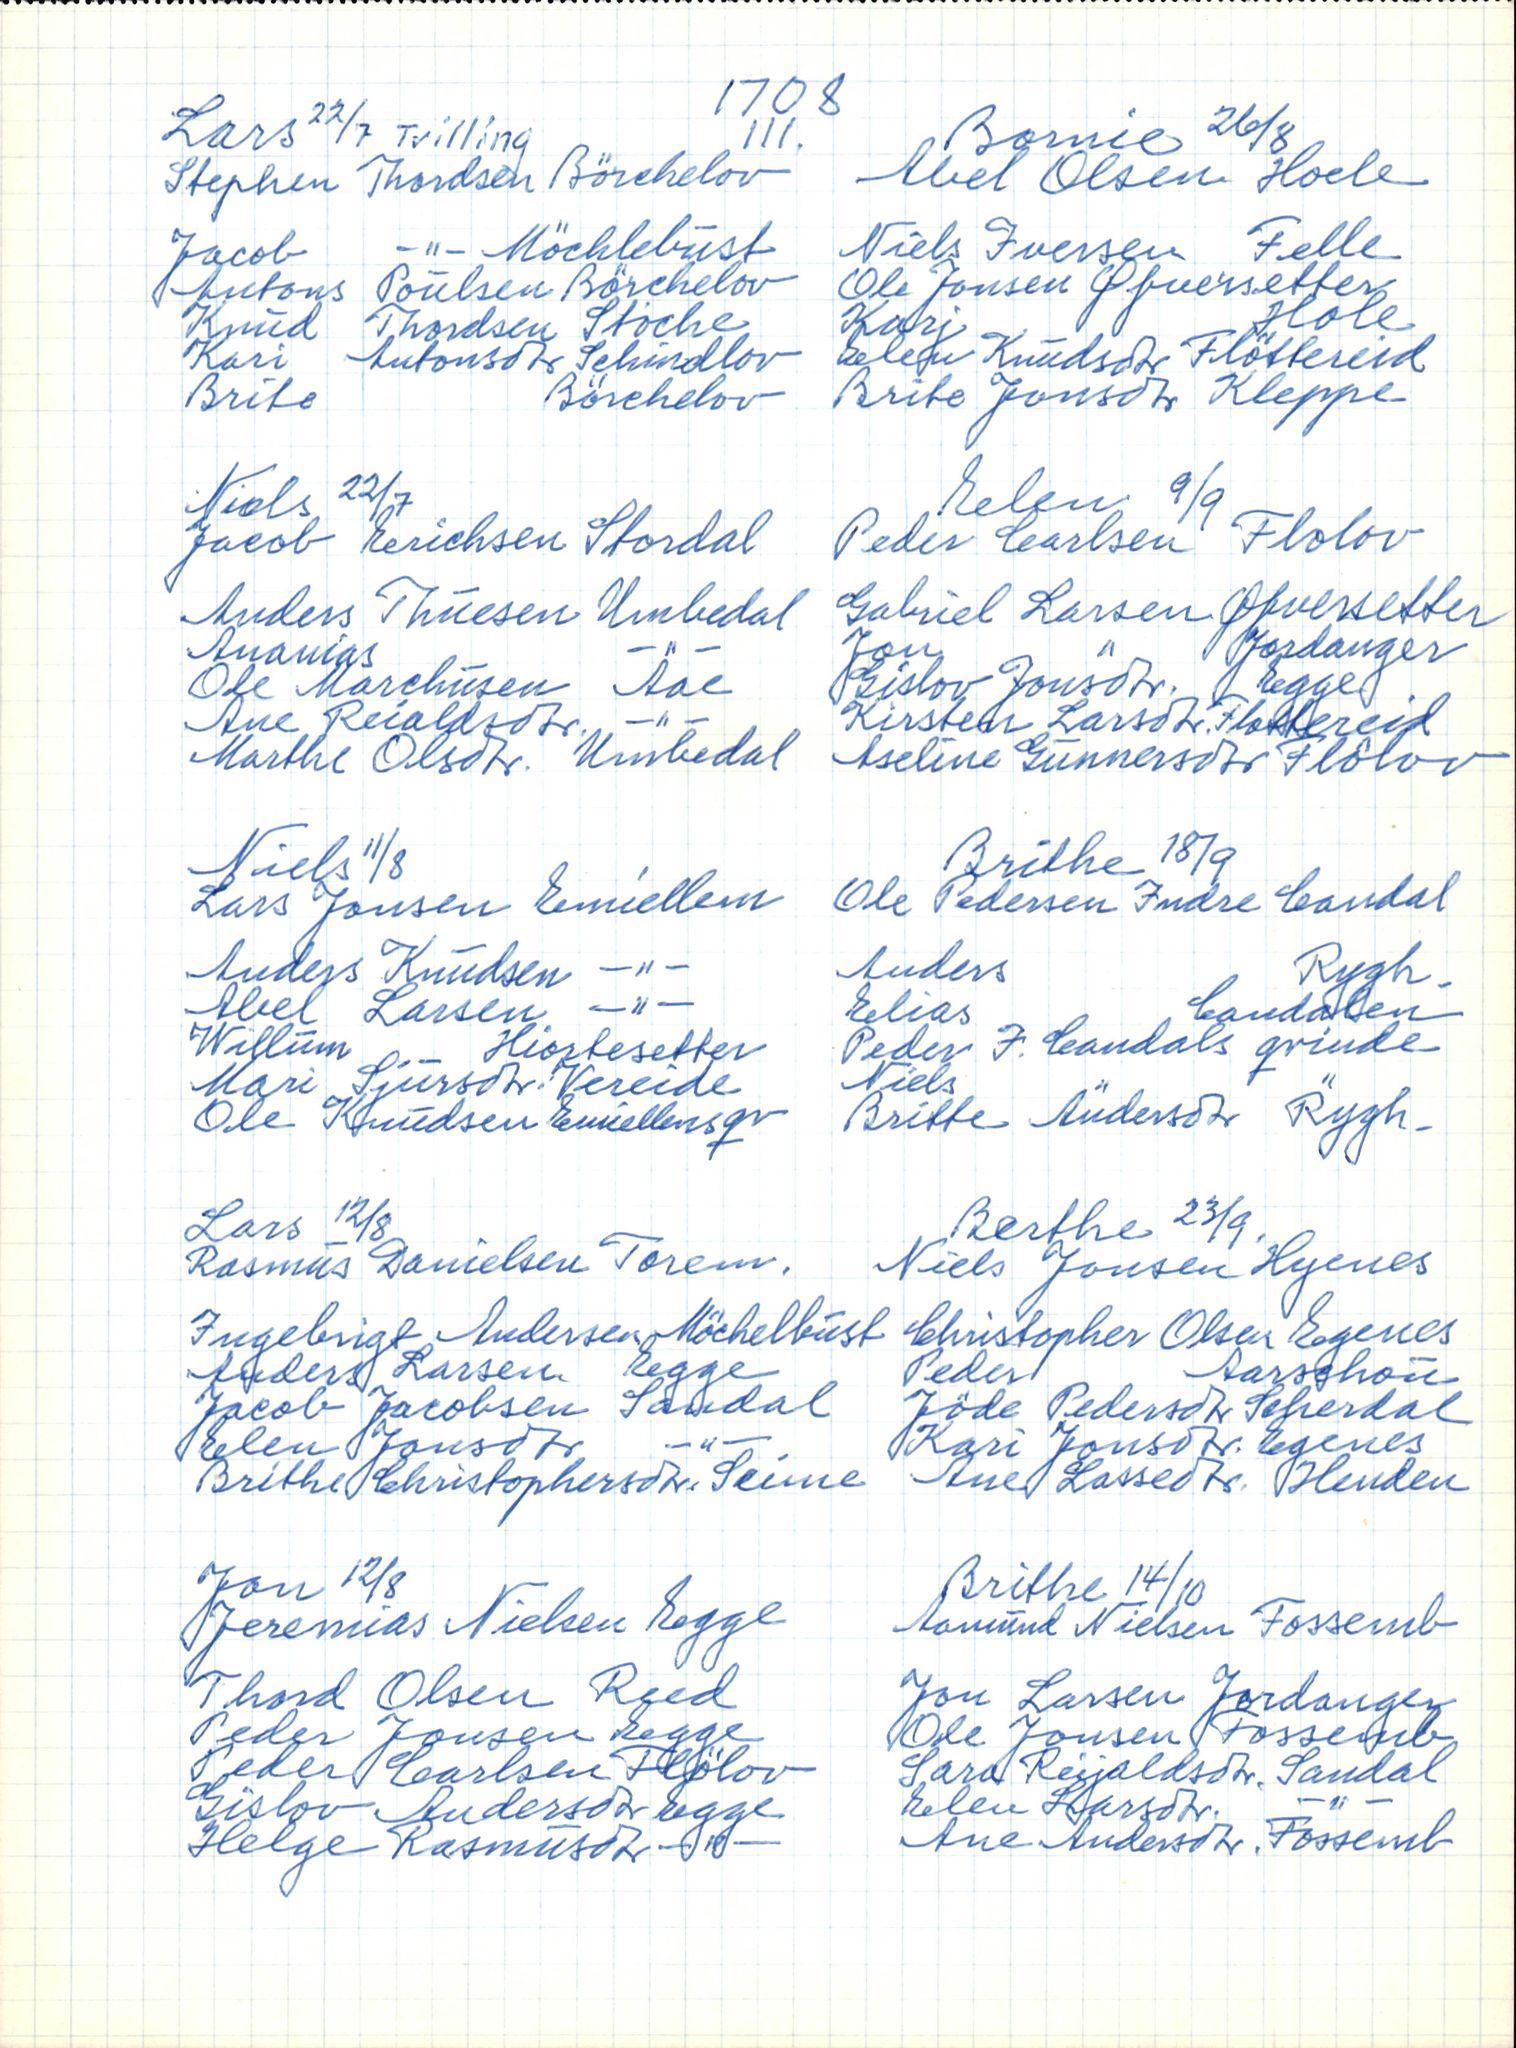 1708
III.
Lars 22/7 Trilling
Stephen Thordsen Börchelov
Jacob -"- Möchlebust
Antons Poulsen Börchelov
Knud Thordsen Stöche
Kari Antonsdtr Schindlov
Brite Börchelov
Niels 22/7
Jacob Erichsen Stordal
Anders Thuesen Umbedal
Ananias -"-
Ole Marchusen Aae
Ane Reialdsdtr. -"-
Marthe Olsdtr. Umbedal
Niels 11/8
Lars Jonsen Emiellem
Anders Knudsen -"-
Abel Larsen -"-
Willum Hiortesetter
Mari Sjursdtr. Vereide
Ole Knudsen Emiellemsqv
Lars 12/8
Rasmus Danielsen Torem.
Ingebrigt Andersen Möchelbust
Anders Larsen Egge
Jacob Jacobsen Sandal
Elen Jonsdtr -"-
Brithe Christophersdtr. Seime
Jon 12/8
Jeremias Nielsen Egge
Thord Olsen Reed
Peder Jonsen Egge
Peder Carlsen Flölov
Gislov Andersdtr Egge
Helge Rasmusdtr -"-
Bornie 26/8
Abel Olsen Hoele
Niels Iversen Felle
Ole Jonsen Øfversetter
Kari Hole
Elen Knudsdtr Flöttereid
Brite Jonsdtr Kleppe
Elen 9/9
Peder Carlsen Flolov
Gabriel Larsen Øfversetter
Jon " Jordanger
Gislov Jonsdtr. Egge
Kirsten Larsdtr. Flottereid
Aseline Gunnersdtr Flölov
Brithe 18/9
Ole Pedersen Indre Candal
Anders Rygh.
Elias Candalen
Peder I. Candals qvinde
Niels " "
Britte Andersdtr Rygh.
Berthe 23/9.
Niels Jonsen Hyenes
Christopher Olsen Egenes
Peder Aarschou
Jöde Pedersdtr Seherdal
Kari Jonsdtr. Egenes
Ane Lassedtr. Henden
Brithe 14/10
Aamund Nielsen Fossemb
Jon Larsen Jordanger
Ole Jonsen Fossemb
Sara Reijaldsdtr. Sandal
Elen Ifvarsdtr. -"-
Ane Andersdtr. Fossemb